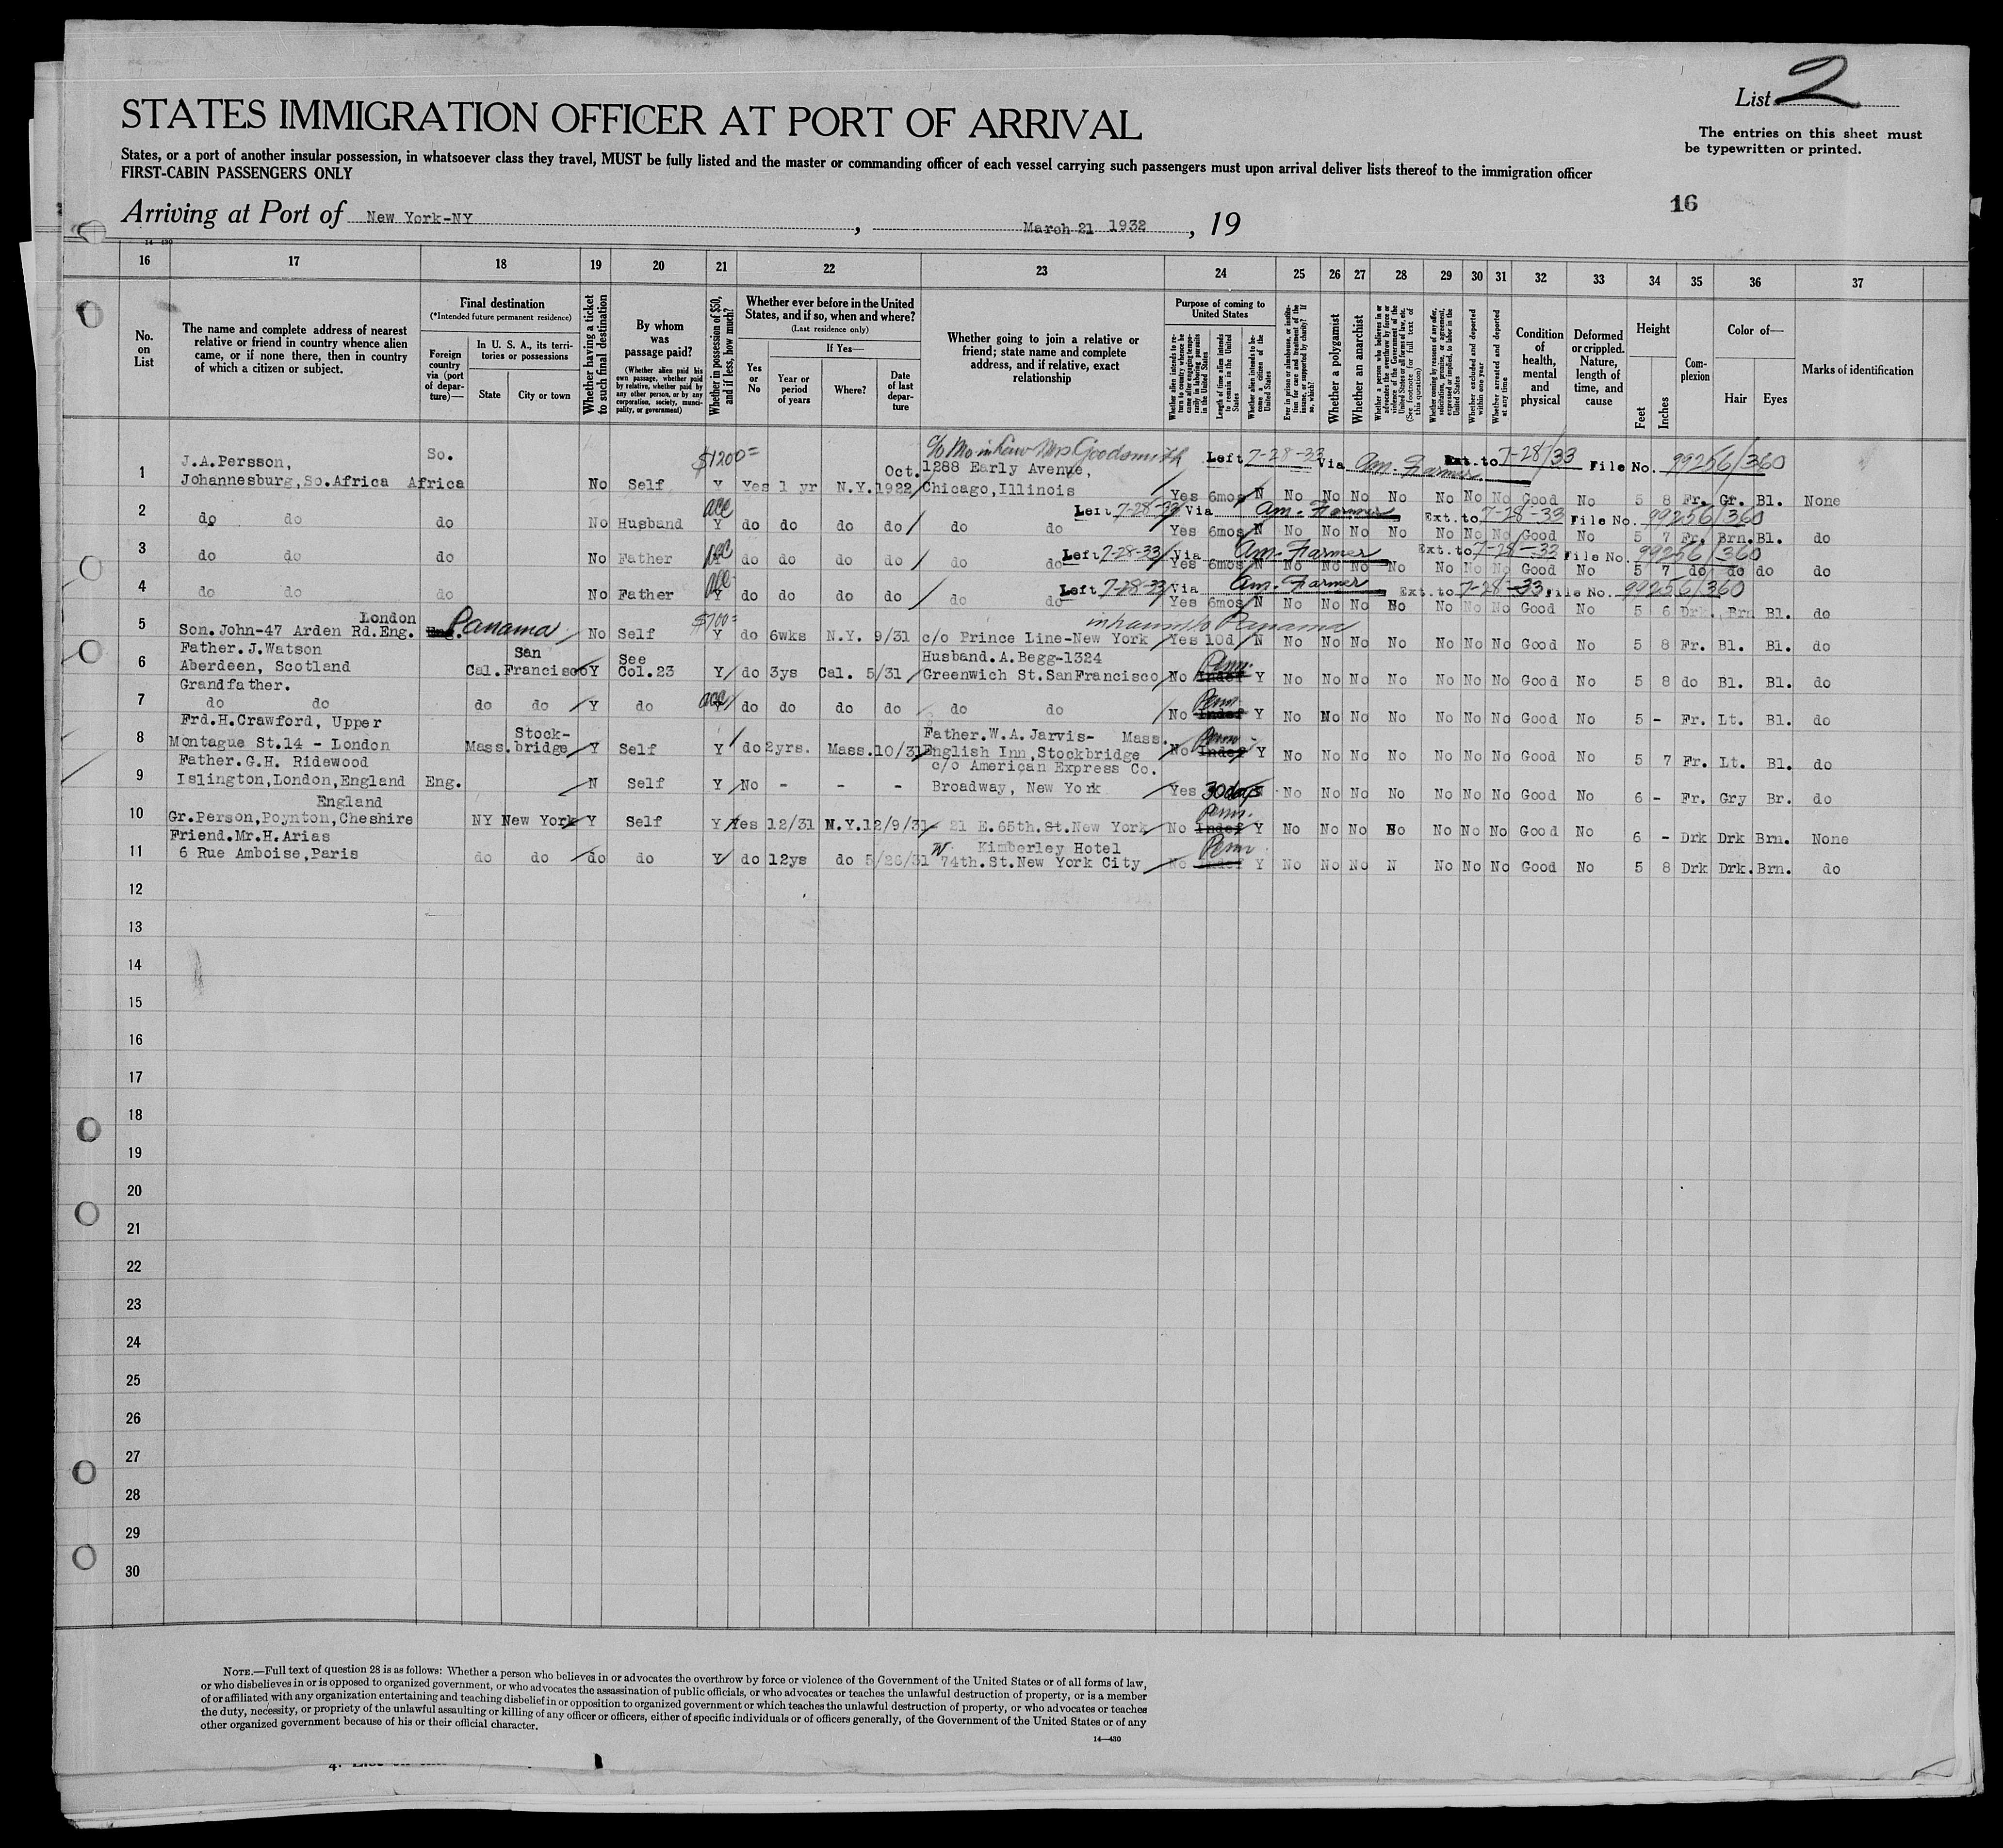 List 2
STATES IMMIGRATION OFFICER AT PORT OF ARRIVAL
The entries on this sheet must
be typewritten or printed.
States, or a port of another insular possession, in whatsoever class they travel, MUST be fully listed and the master or commanding officer of each vessel carrying such passengers must upon arrival deliver lists thereof to the immigration officer
FIRST-CABIN PASSENGERS ONLY
16
Arriving at Port of New York-NY , March 21 1932 , 19
14—430
16 17 18 19 20 21 22 23 24 25 26 27 28 29 30 31 32 33 34 35 36 37
No. on List
The name and complete address of nearest relative or friend in country whence alien came, or if none there, then in country of which a citizen or subject.
Final destination
(*Intended future permanent residence)
Foreign country via (port of departure)—
In U. S. A., its territories or possessions
State
City or town
Whether having a ticket to such final destination
By whom was passage paid?
(Whether alien paid his own passage, whether paid by relative, whether paid by any other person, or by any corporation, society, municipality, or government)
Whether in possession of $50, and if less, how much?
Whether ever before in the United States, and if so, when and where?
(Last residence only)
Yes or No
If Yes—
Year or period of years
Where?
Date of last departure
Whether going to join a relative or friend; state name and complete address, and if relative, exact relationship
Purpose of coming to United States
Whether alien intends to return to country whence he came after engaging temporarily in laboring pursuits in the United States
Length of time alien intends to remain in the United States
Whether alien intends to become a citizen of the United States
Ever in prison or almshouse, or institution for care and treatment of the insane, or supported by charity? If so, which?
Whether a polygamist
Whether an anarchist
Whether a person who believes in or advocates the overthrow by force or violence of the Government of the United States or all forms of law, etc. (See footnote for full text of this question)
Whether coming by reasons of any offer, solicitation, promise, or agreement, expressed or implied, to labor in the United States
Whether excluded and deported within one year
Whether arrested and deported at any time
Condition of health, mental and physical
Deformed or crippled. Nature, length of time, and cause
Height
Feet
Inches
Complexion
Color of—
Hair
Eyes
Marks of identification
So. $1200= c/o Mrs Goodsmith Left 7-28-33 Via Am. Farmer Ext. to 7-28/33 File No. 99256/360
1 J.A.Persson, Oct. 1288 Early Avenue,
Johannesburg,So.Africa Africa No Self Y Yes 1 yr N.Y. 1922 Chicago,Illinois Yes 6mos N No No No No No No No Good No 5 8 Fr. Gr. Bl. None
acc Left 7-28-33 Via Am. Farmer Ext. to 7-28-33 File No. 99256/360
2 do do do No Husband Y do do do do do do Yes 6mos N No No No No No No No Good No 5 7 Fr. Brn. Bl. do
acc Left 7-28-33 Via Am. Farmer Ext. to 7-28-33 File No. 99256/360
3 do do do No Father do do do do do do Yes 6mos N No No No No No No No Good No 5 7 do do do do
acc Left 7-28-33 Via Am. Farmer Ext. to 7-28-33 File No. 99256/360
4 do do do No Father Y do do do do do do Yes 6mos N No No No No No No No Good No 5 6 Drk. Brn Bl. do
London $700= Panama
5 Son.John-47 Arden Rd.Eng. Panama No Self Y do 6wks N.Y. 9/31 c/o Prince Line-New York Yes 10d N No No No No No No No Good No 5 8 Fr. Bl. Bl. do
Father.J.Watson San See Husband.A.Begg-1324 Perm.
6 Aberdeen, Scotland Cal. Francisco Y Col.23 Y do 3ys Cal. 5/31 Greenwich St.SanFrancisco No Indef Y No No No No No No No Good No 5 8 do Bl. Bl. do
Grandfather. acc Perm
7 do do do do Y do Y do do do do do do No Indef Y No No No No No No No Good No 5 - Fr. Lt. Bl. do
Frd.H.Crawford, Upper Stock- Father.W.A.Jarvis- Mass. Perm
8 Montague St.14 - London Mass. bridge Y Self Y do 2yrs. Mass. 10/31 English Inn,Stockbridge No Indef Y No No No No No No No Good No 5 7 Fr. Lt. Bl. do
Father. G.H. Ridewood c/o American Express Co.
9 Islington,London,England Eng. N Self Y No - - - Broadway, New York Yes 30days No No No No No No No Good No 6 - Fr. Gry Br. do
England Perm.
10 Gr.Person,Poynton,Cheshire NY New York Y Self Y Yes 12/31 N.Y. 12/9/31 - 21 E.65th.St.New York No Indef Y No No No No No No No Good No 6 - Drk Drk Brn. None
Friend.Mr.H.Arias W Kimberley Hotel Perm
11 6 Rue Amboise,Paris do do do do Y do 12ys do 5/26/31 74th.St.New York City No Indef Y No No No N No No No Good No 5 8 Drk Drk. Brn. do
12
13
14
15
16
17
18
19
20
21
22
23
24
25
26
27
28
29
30
NOTE.—Full text of question 28 is as follows: Whether a person who believes in or advocates the overthrow by force or violence of the Government of the United States or of all forms of law,
or who disbelieves in or is opposed to organized government, or who advocates the assassination of public officials, or who advocates or teaches the unlawful destruction of property, or is a member
of or affiliated with any organization entertaining and teaching disbelief in or opposition to organized government or which teaches the unlawful destruction of property, or who advocates or teaches
the duty, necessity, or propriety of the unlawful assaulting or killing of any officer or officers, either of specific individuals or of officers generally, of the Government of the United States or of any
other organized government because of his or their official character.
14—430